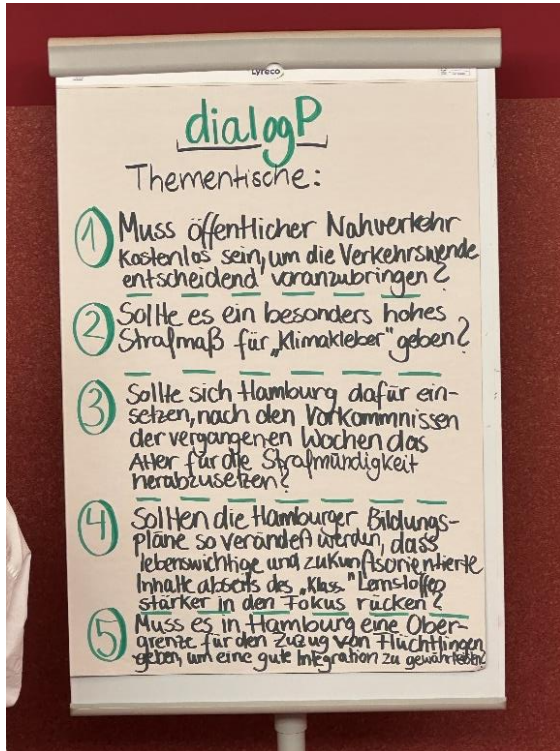 Lyreco
dialogP
Thementische:
1 Muss öffentlicher Nahverkehr
kostenlos sein, um die Verkehrswende
entscheidend voranzubringen?
2 Sollte es ein besonders hohes
Strafmaß für „Klimakleber" geben?
3 Sollte sich Hamburg dafür ein-
setzen, nach den Vorkommnissen
der vergangenen Wochen das
Alter für die Strafmündigkeit
herabzusetzen?
4 Sollten die Hamburger Bildungs-
pläne so verändert werden, dass
lebenswichtige und zukunftsorientierte
Inhalte abseits des „klass." Lernstoffes
stärker in den Fokus rücken?
5 Muss es in Hamburg eine Ober-
grenze für den Zuzug von Flüchtlingen
geben, um eine gute Integration zu gewährleisten?